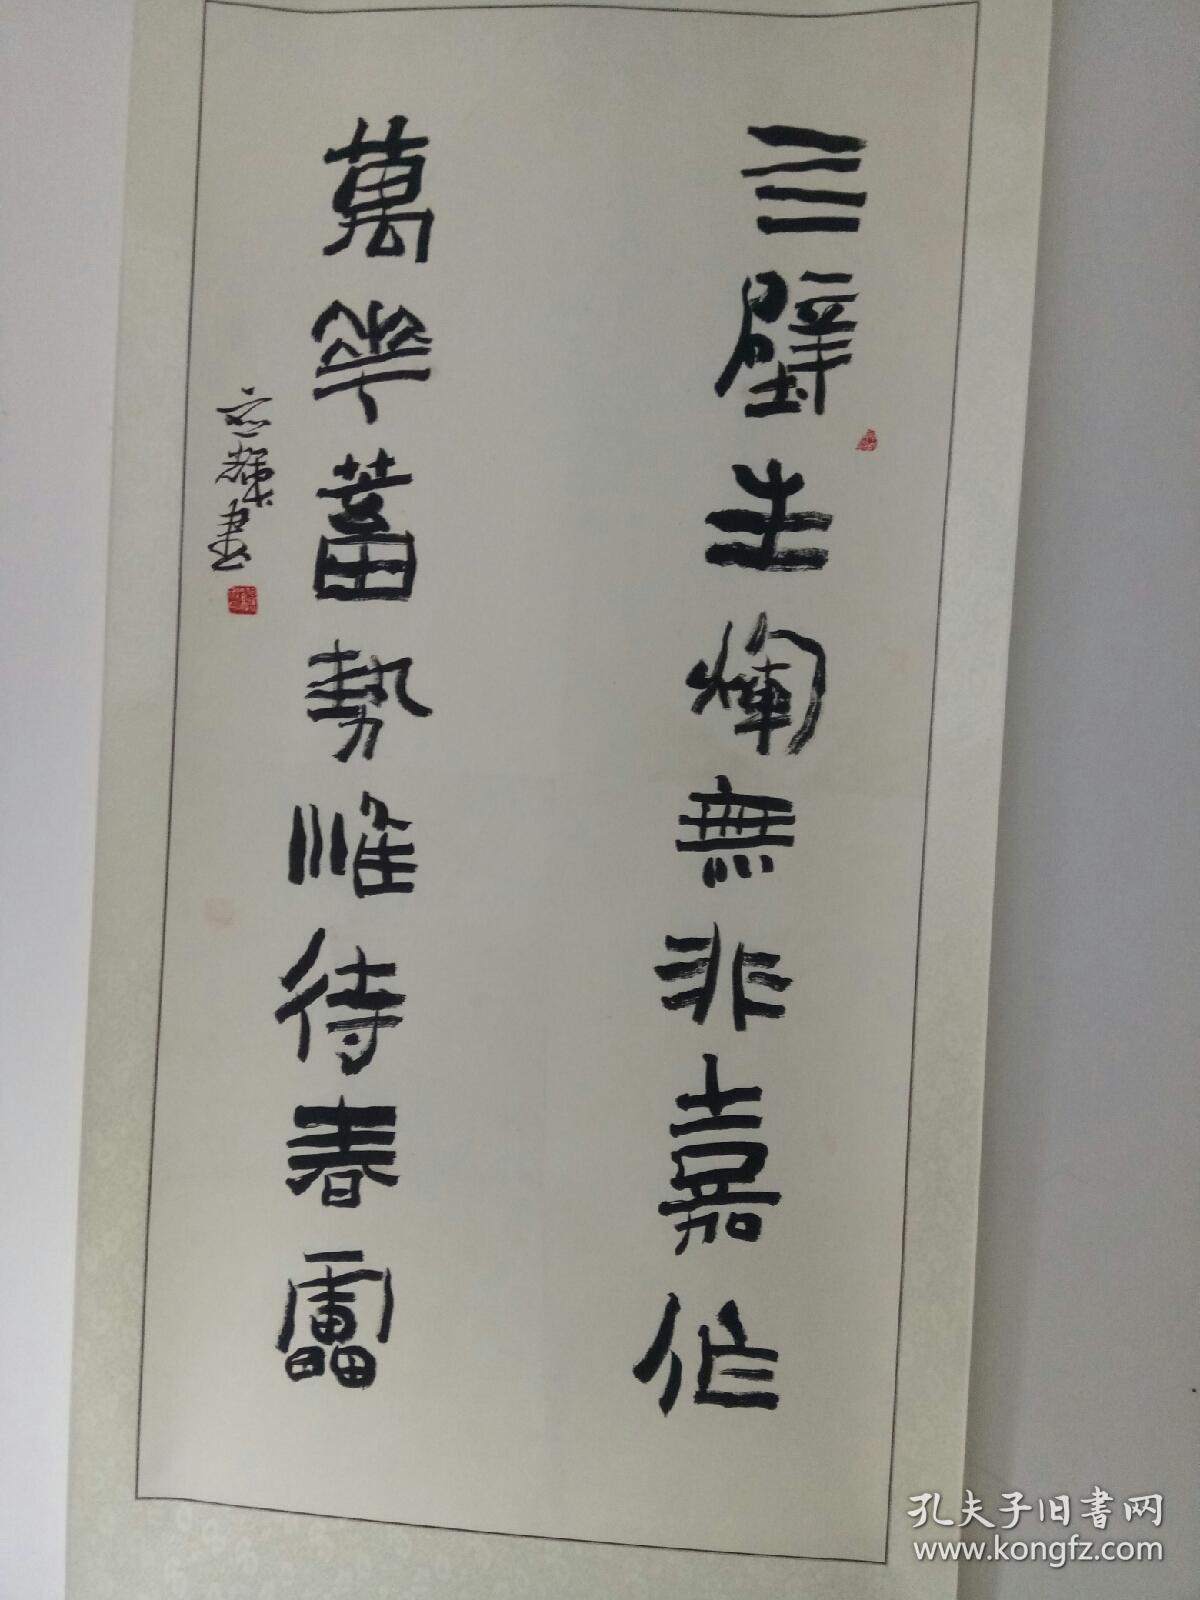 三壁生斓無非嘉作
萬華蓄勢惟待春雷
应辉書
孔夫子旧書网
www.kongfz.com